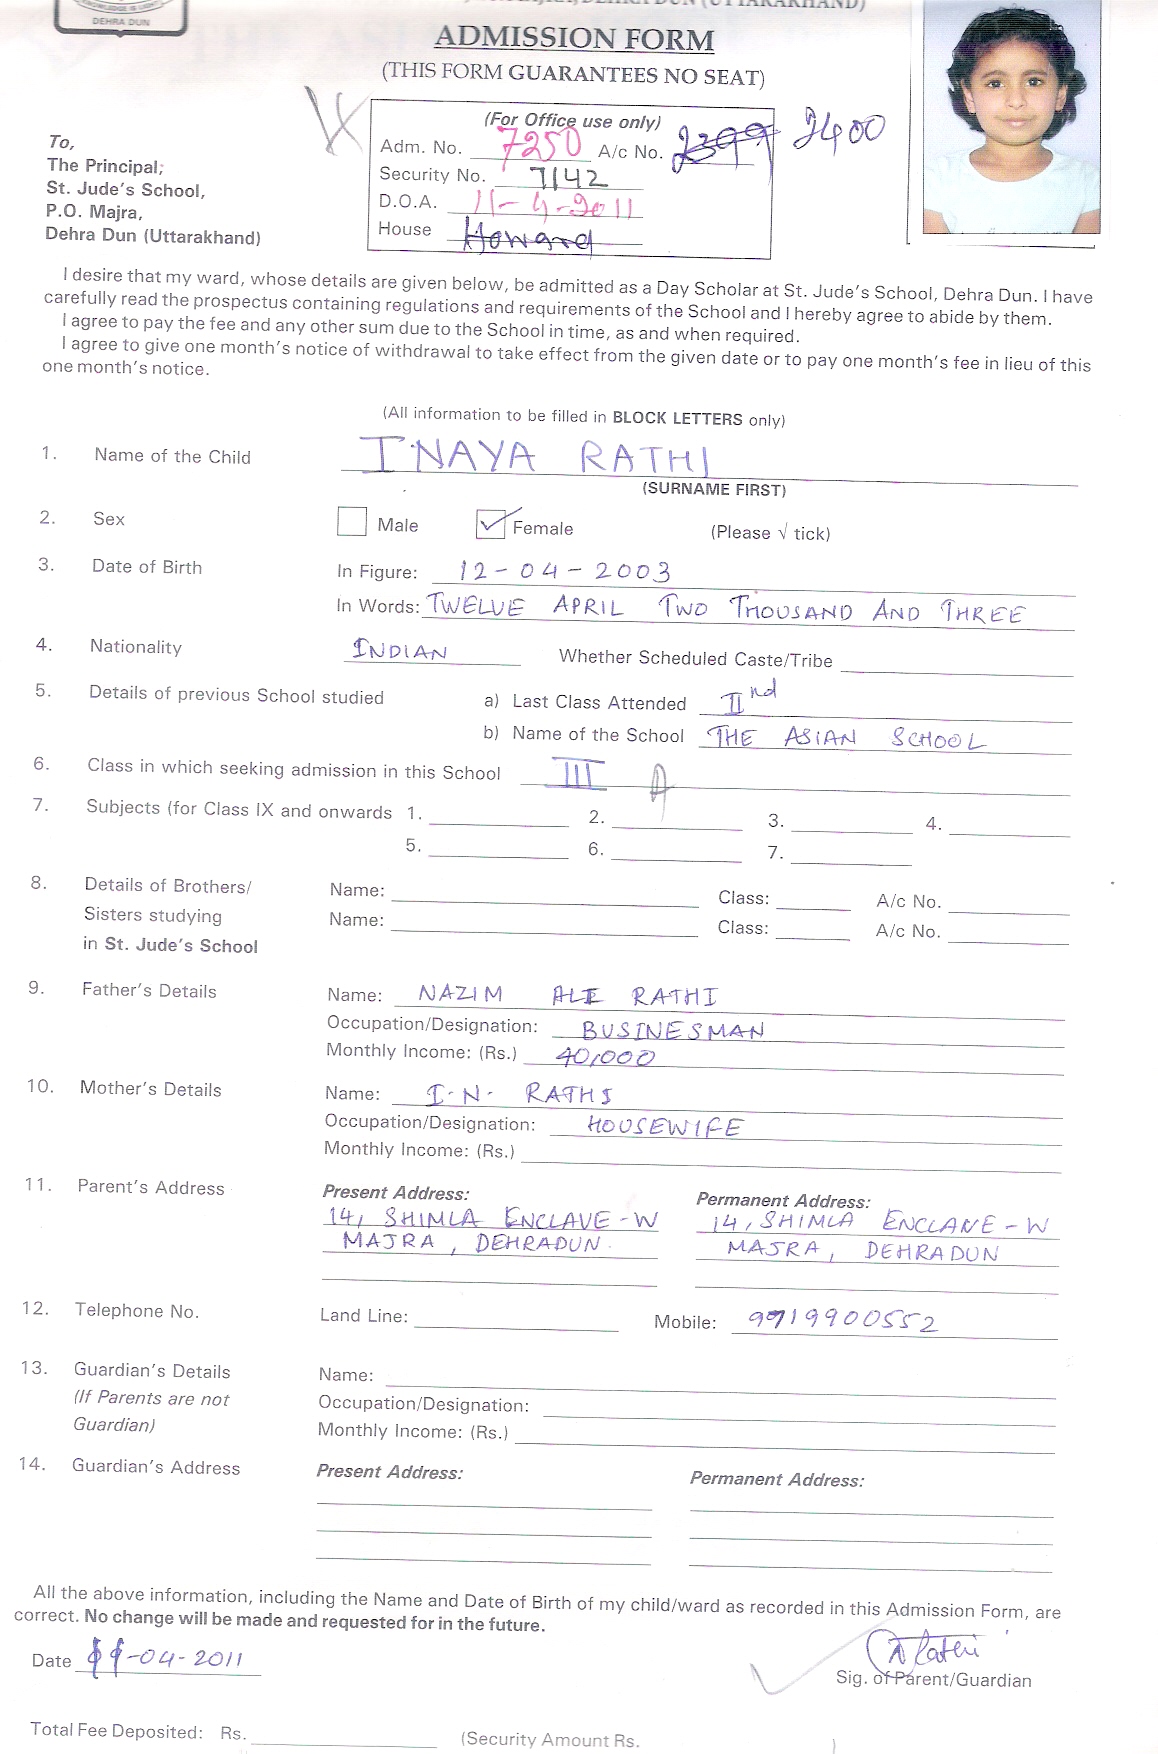 DEHRA DUN
ADMISSION FORM
(THIS FORM GUARANTEES NO SEAT)
(For Office use only)
Adm. No. 7250 A/c No. 2399 2400
Security No. 7142
D.O.A. 11-4-2011
House Howard
To,
The Principal;
St. Jude's School,
P.O. Majra,
Dehra Dun (Uttarakhand)
I desire that my ward, whose details are given below, be admitted as a Day Scholar at St. Jude's School, Dehra Dun. I have
carefully read the prospectus containing regulations and requirements of the School and I hereby agree to abide by them.
I agree to pay the fee and any other sum due to the School in time, as and when required.
I agree to give one month's notice of withdrawal to take effect from the given date or to pay one month's fee in lieu of this
one month's notice.
(All information to be filled in BLOCK LETTERS only)
1. Name of the Child INAYA RATHI
(SURNAME FIRST)
2. Sex Male Female (Please √ tick)
3. Date of Birth In Figure: 12-04-2003
In Words: TWELVE APRIL TWO THOUSAND AND THREE
4. Nationality INDIAN Whether Scheduled Caste/Tribe
5. Details of previous School studied a) Last Class Attended IInd
b) Name of the School THE ASIAN SCHOOL
6. Class in which seeking admission in this School III A
7. Subjects (for Class IX and onwards 1. 2. 3. 4.
5. 6. 7.
8. Details of Brothers/ Name: Class: A/c No.
Sisters studying Name: Class: A/c No.
in St. Jude's School
9. Father's Details Name: NAZIM ALI RATHI
Occupation/Designation: BUSINESMAN
Monthly Income: (Rs.) 40,000
10. Mother's Details Name: I.N. RATHI
Occupation/Designation: HOUSEWIFE
Monthly Income: (Rs.)
11. Parent's Address Present Address: Permanent Address:
14, SHIMLA ENCLAVE-W 14, SHIMLA ENCLAVE-W
MAJRA, DEHRADUN. MAJRA, DEHRADUN
12. Telephone No. Land Line: Mobile: 9719900552
13. Guardian's Details Name:
(If Parents are not Occupation/Designation:
Guardian) Monthly Income: (Rs.)
14. Guardian's Address Present Address: Permanent Address:
All the above information, including the Name and Date of Birth of my child/ward as recorded in this Admission Form, are
correct. No change will be made and requested for in the future.
Date -04-2011
Sig. of Parent/Guardian
Total Fee Deposited: Rs. (Security Amount Rs. )